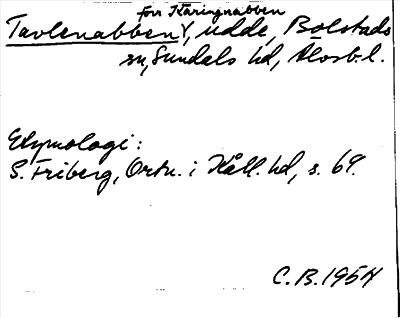 förr Käringnabben
Tavlenabben V, udde, Bolstads
sn, Sundals hd, Älvsb. l.
Etymologi:
S. Friberg, Ortn. i Kåll. hd, s. 69.
C.B. 1954